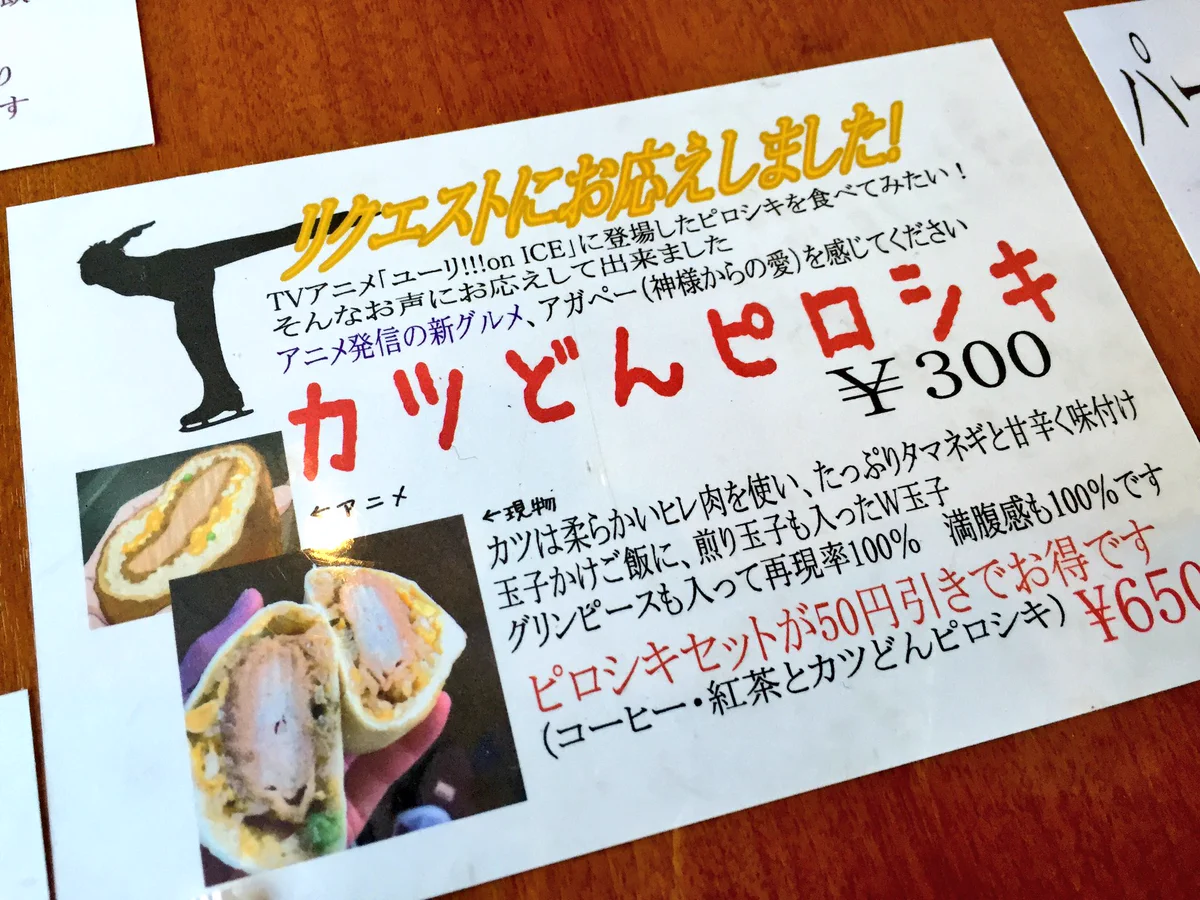 り
す
パー
リクエストにお応えしました!
TVアニメ「ユーリ!!!on ICE」に登場したピロシキを食べてみたい!
そんなお声にお応えして出来ました
アニメ発信の新グルメ、アガペー(神様からの愛)を感じてください
カツどんピロシキ
¥300
←アニメ
←現物
カツは柔らかいヒレ肉を使い、たっぷりタマネギと甘辛く味付け
玉子かけご飯に、煎り玉子も入ったW玉子
グリンピースも入って再現率100% 満腹感も100%です
ピロシキセットが50円引きでお得です
(コーヒー・紅茶とカツどんピロシキ) ¥650